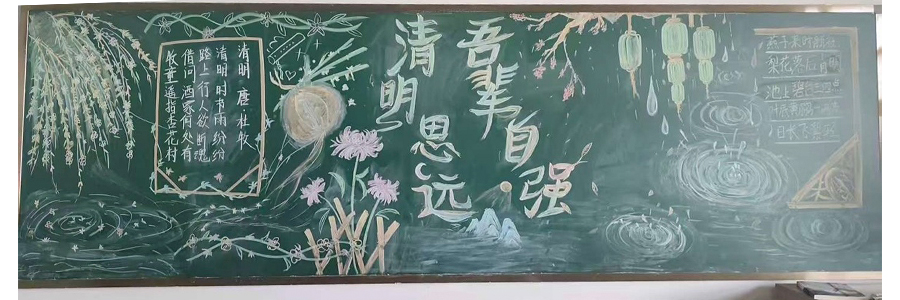 清明 唐 杜牧
清明时节雨纷纷
路上行人欲断魂
借问酒家何处有
牧童遥指杏花村
清明
思远
吾辈
自强
燕子来时新社
梨花落后清明
池上碧
日长飞絮